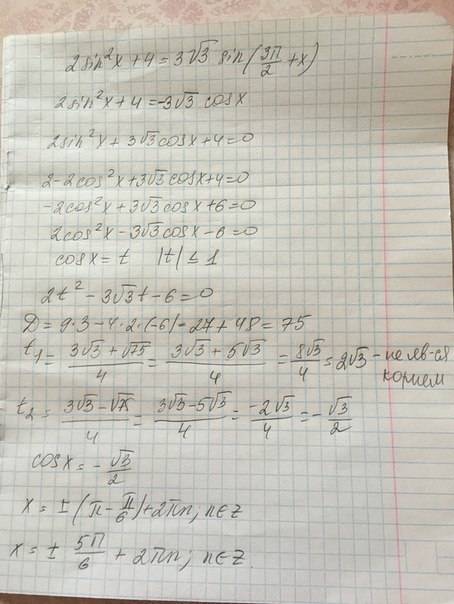 2sin²x+4=3√3 sin(3π/2+x)
2sin²x+4=-3√3 cosx
2sin²x+3√3cosx+4=0
2-2cos²x+3√3cosx+4=0
-2cos²x+3√3cosx+6=0
2cos²x-3√3cosx-6=0
cosx=t |t|≤1
2t²-3√3t-6=0
D=9·3-4·2·(-6)=27+48=75
t₁=(3√3+√75)/4=(3√3+5√3)/4=8√3/4=2√3-не явл-ся
корнем
t₂=(3√3-√75)/4=(3√3-5√3)/4=-2√3/4=-√3/2
cosx=-√3/2
x=±(π-π/6)+2πn, n∈Z
x=±5π/6+2πn; n∈Z.